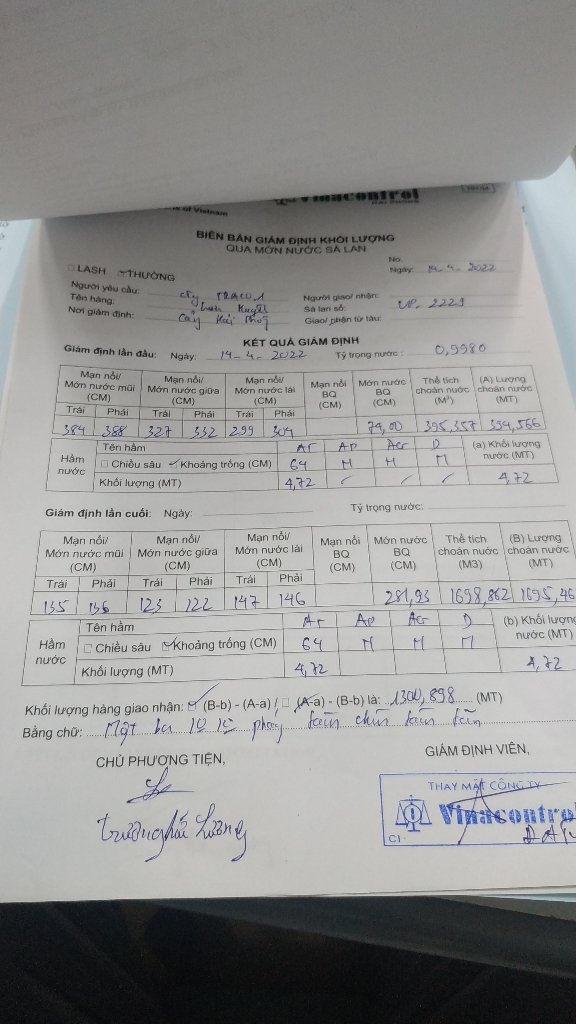 of Vietnam
Vinacontrol
BIÊN BẢN GIÁM ĐỊNH KHỐI LƯỢNG
QUA MỚN NƯỚC SÀ LAN
No.
□ LASH ☑ THƯỜNG Ngày: 14-4-2022
Người yêu cầu: Người giao/ nhận:
Tên hàng: Sà lan số: VP. 2221
Nơi giám định: Cảng Hải Phòng Giao/ phận từ tàu:
KẾT QUẢ GIÁM ĐỊNH
Giám định lần đầu: Ngày: 14-4-2022 Tỷ trọng nước: 0,9980
Mạn nổi/ Mớn nước mũi (CM) Mạn nổi/ Mớn nước giữa (CM) Mạn nổi/ Mớn nước lái (CM) Mạn nổi BQ (CM) Mớn nước BQ (CM) Thể tích choán nước (M³) (A) Lượng choán nước (MT)
Trái Phải Trái Phải Trái Phải
384 388 327 332 299 304 74,00 395,357 394,566
Hầm nước
Tên hầm AF AP Acr D (a) Khối lượng nước (MT)
□ Chiều sâu ☑ Khoảng trống (CM) 64 M M M
Khối lượng (MT) 4,72 4,72
Giám định lần cuối: Ngày: Tỷ trọng nước:
Mạn nổi/ Mớn nước mũi (CM) Mạn nổi/ Mớn nước giữa (CM) Mạn nổi/ Mớn nước lái (CM) Mạn nổi BQ (CM) Mớn nước BQ (CM) Thể tích choán nước (M3) (B) Lượng choán nước (MT)
Trái Phải Trái Phải Trái Phải
135 136 123 122 147 146 281,93 1698,862 1695,46
Hầm nước
Tên hầm AF AP Acr D (b) Khối lượng nước (MT)
□ Chiều sâu ☑ Khoảng trống (CM) 64 M M M
Khối lượng (MT) 4,72 4,72
Khối lượng hàng giao nhận: ☑ (B-b) - (A-a) / □ (A-a) - (B-b) là: 1300,898 (MT)
Bằng chữ: Một ba
CHỦ PHƯƠNG TIỆN, GIÁM ĐỊNH VIÊN,
THAY MẶT CÔNG TY
Vinacontrol
CI